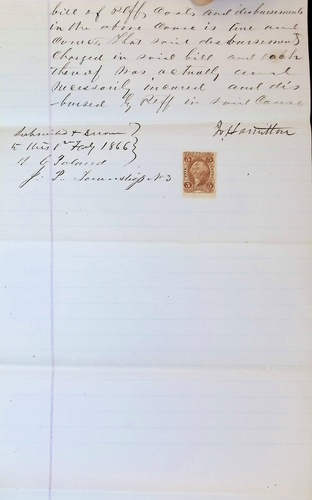 bill of Plffs Costs and disbursements
in the above Cause is true and
Correct, That said disbursements
Charged in said bill and each
thereof was actually and
necessarily incured and dis
bursed by Plff in said Cause
Subscribed & sworn
to this 1st July 1866
H G Poland
J. P. Township N 3
5
5